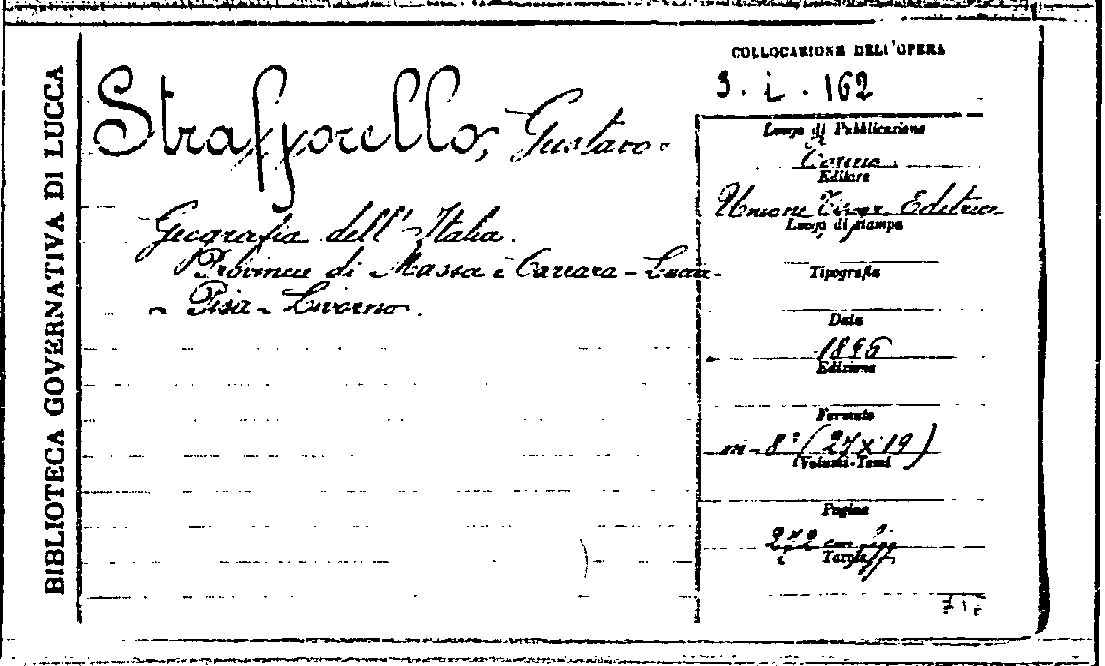 BIBLIOTECA GOVERNATIVA DI LUCCA
COLLOCAZIONE DELL'OPERA
3. i. 162
Strafforello, Gustavo.
Geografia dell'Italia.
Provincie di Massa e Carrara - Lucca -
- Pisa - Livorno.
Luogo di Pubblicazione
Torino
Editore
Unione Tipogr. Editrice
Luogo di stampa
Tipografia
Data
1896
Edizione
Formato
in-8° (27 x 19)
Volumi-Tomi
Pagine
272 con figg
Tavole